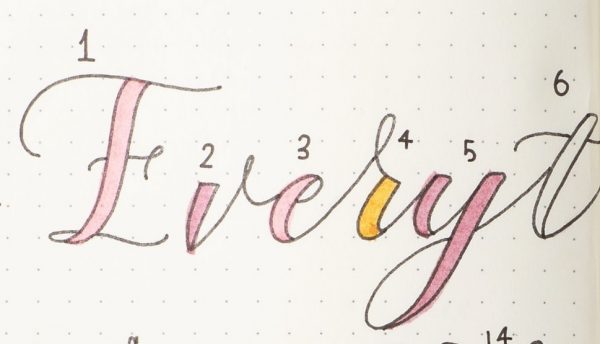 1 2 3 4 5 6
Everyt
14